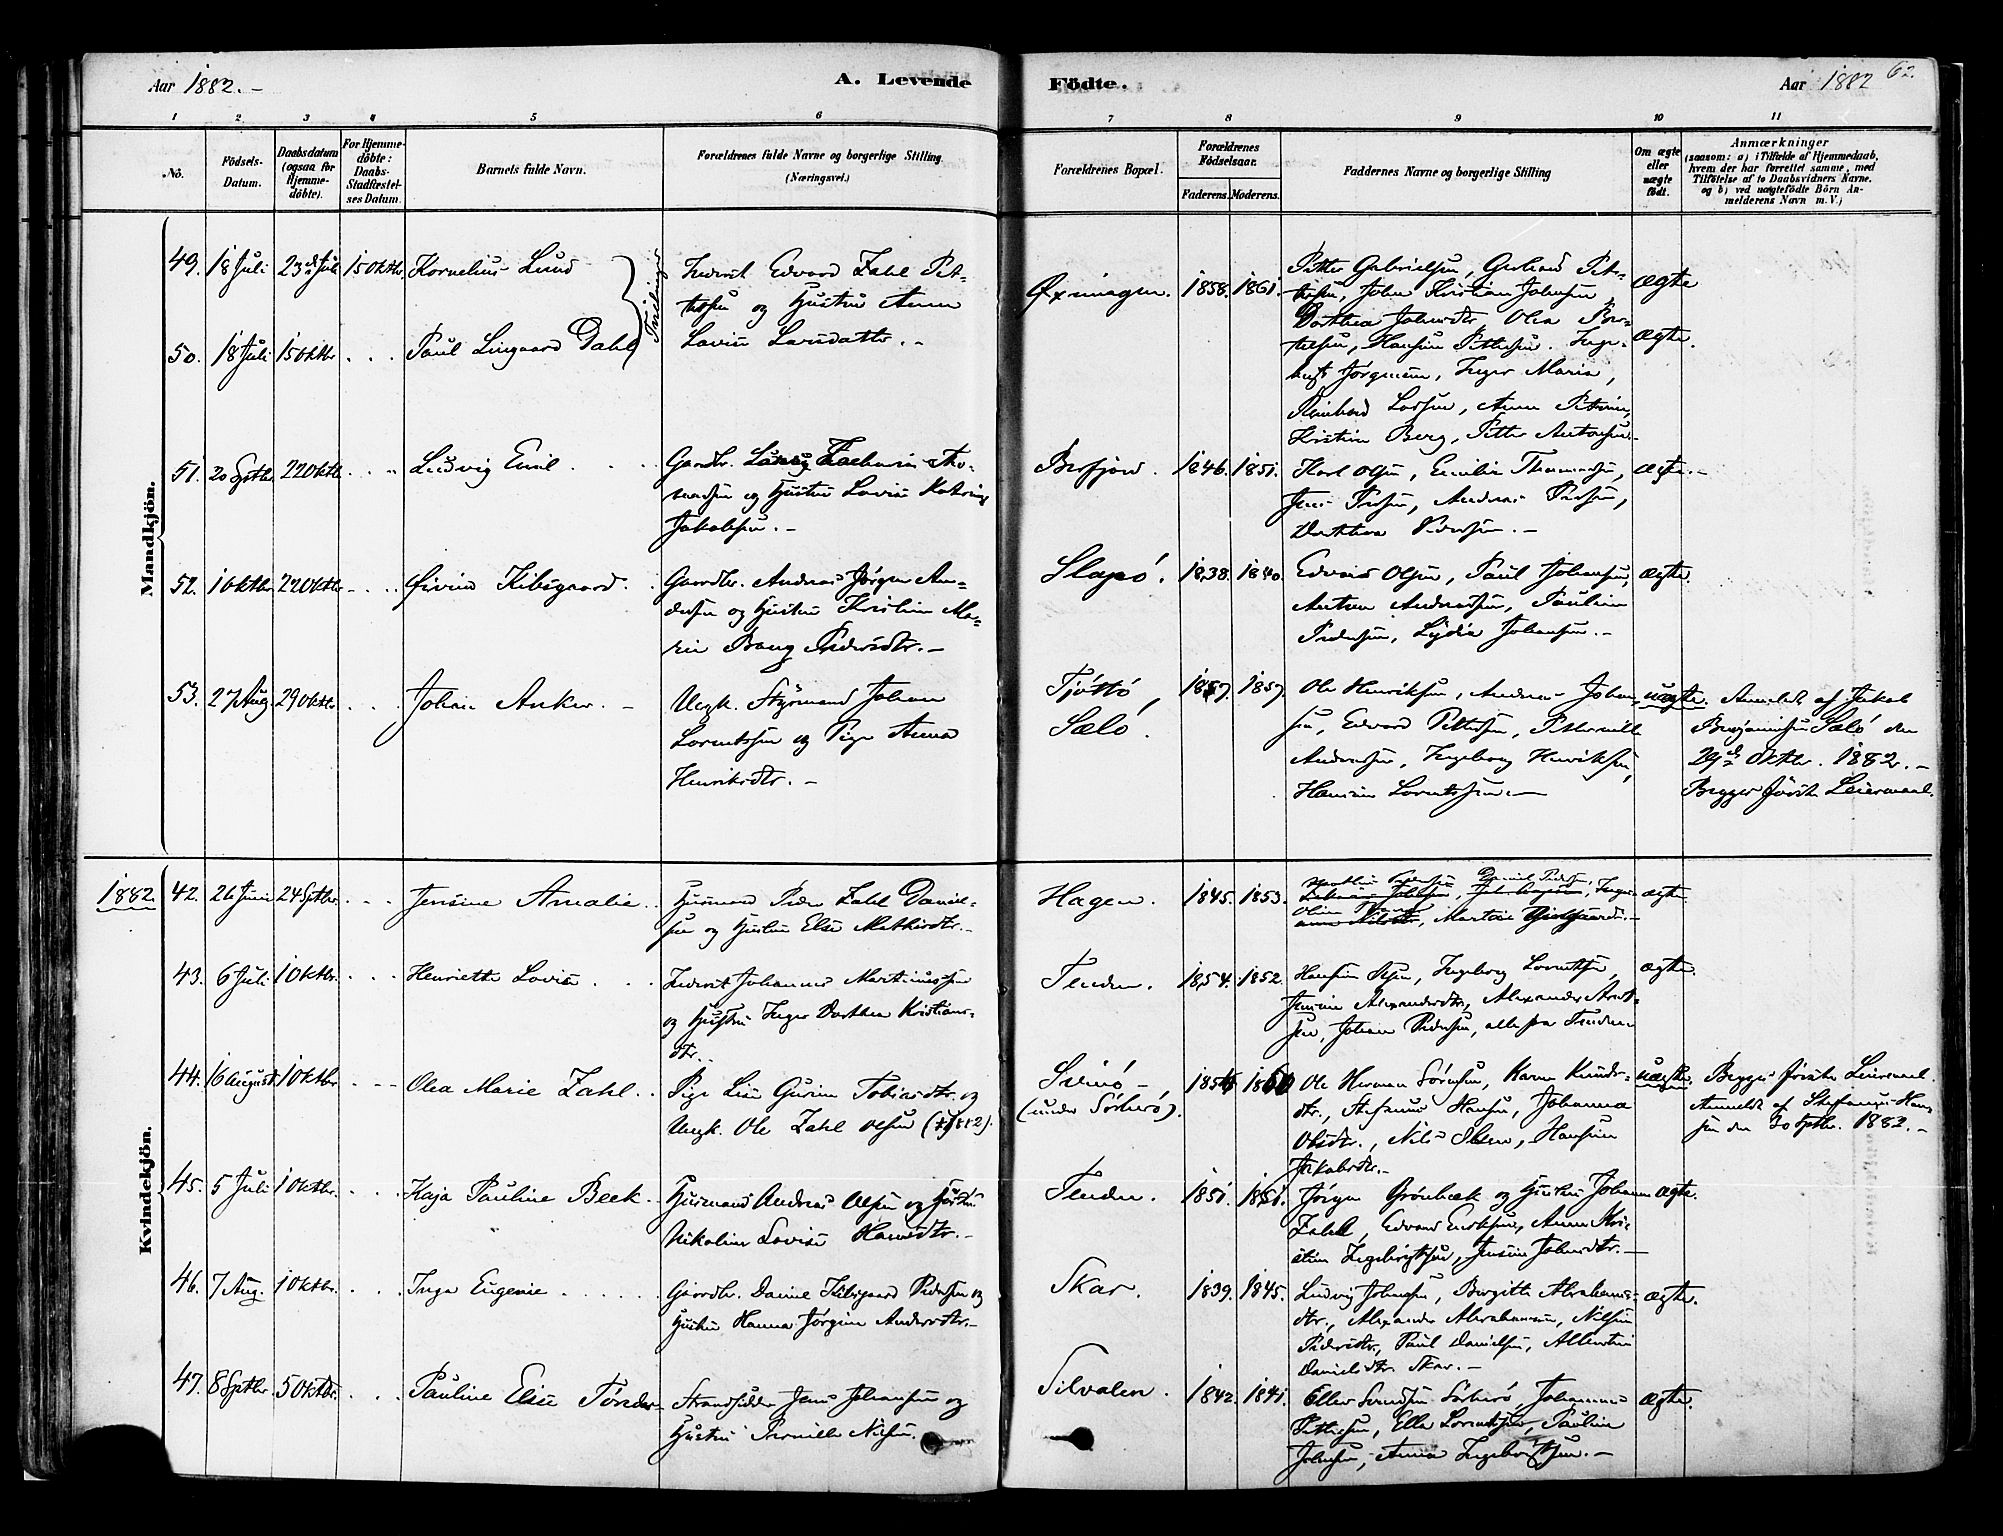 Aar 1882.-
A. Levende
Födte.
Aar 1882
62.
1 2 3 4 5 6 7 8 9 10 11
No.
Födsels-
Datum.
Daabsdatum
(ogsaa for
Hjemme-
döbte).
For Hjemme-
döbte:
Daabs-
Stadfæstel-
ses Datum.
Barnets fulde Navn.
Forældrenes fulde Navne og borgerlige Stilling.
(Næringsvei.)
Forældrenes Bopæl.
Forældrenes
Födselsaar.
Faderens. Moderens.
Faddernes Navne og borgerlige Stilling
Om ægte
eller
uægte
födt.
Anmærkninger
(saasom: a) i Tilfælde af Hjemmedaab,
hvem der har forrettet samme, med
Tilföielse af to Daabsvidners Navne.
og b) ved uægtefödte Börn An-
melderens Navn m.V.)
Mandkjön.
49. 18 Juli 23de Juli 15 Oktbr. Kornelius Lund
Tvillinger
Inderst Edvard Zahl Pet-
tersen og Hustru Anna
Lovise Larsdatter.-
Øxningen. 1858. 1861.
Petter Gabrielsen, Gerhard Pet-
tersen, John Kristian Johnsen
Dorthea Johnsdtr Olea Pet-
tersen, Hansine Pettersen. Inge-
Jørgensen, Inger Maria,
Reinhard Larsen, Anna Petrine,
Kristine Berg, Petter Antonsen.
Ægte
50. 18 Juli 15 Oktbr . . . Paul Lingaard Dahl
Ægte.
51. 20 Sptbr. 22 Oktbr. . . . Ludvig Emil . . .
Gaardbr. Zacharias Tho-
massen og Hustru Lovise Katrine
Jakobsen.-
Borfjord. 1846. 1851.
Karl Olsen, Emilie Thomassen,
Jens Pedersen, Andreas Pedersen,
Dorthea Pedersen.-
Ægte.-
52. 1 Oktbr. 22 Oktbr. . . . Øivind Kibsgaard.
Gaardbr. Andreas Jørgen An-
dersen og Hustru Kristine Ma-
rie Bang Pedersdtr.-
Slapø. 1838. 1840.
Edvard Olsen, Paul Johansen,
Anton Andreassen, Pauline
Pedersen, Lydia Johansen.-
Ægte.
53. 27 Aug. 29 Oktbr. . . . Johan Anker.-
Ungk. Styrmand Johan
Lorentssen og Pige Anna
Henriksdtr.-
Tjøttø,
Sælø.
1857. 1857.
Ole Henriksen, Andreas Johan-
sen, Edvard Pettersen, Petternille
Andersen, Ingeborg Henriksen,
Hansine Lorentssen.-
uægte.
Anmeldt af Jakob
Benjaminsen Sælø den
29de Oktbr. 1882.-
Begges første Leiermaal.
Kvindekjön.
1882
42. 26 Juni 24 Sptbr. . . . Jensine Amalie.
Husmand Peder Zahl Daniel-
sen og Hustru Else Mathisdtr.-
Hagen. 1845. 1853.
Ægte.
43. 6 Juli 1 Oktbr. . . . Henriette Lovise . . .
Inderst Johannes Martinussen
og Hustru Inger Dorthea Kristians-
dtr.
Tenden. 1854. 1852.
Hansine Olsen, Ingeborg Lorentsen,
Jensine Alexandersdtr, Alexander Arnt-
sen, Johan Pedersen, alle fra Tenden
Ægte.
44. 16 August. 1 Oktbr. - - - Olea Marie Zahl.
Pige Lise Gurine Tobiasdtr. og
Ungk. Ole Zahl Olsen
Svinø-
(under Sørherø).
Ole Herman Sørensen, Karen Knuds-
dtr., Stefanus Hansen, Johanna
Olsdtr., Nils Olsen, Hansine
Jakobsdtr.-
uægte.
Begges første Leiermaal.
Anmeldt af Stefanus Han-
sen den 30 Sptbr. 1882.-
45. 5 Juli 1 Oktbr. . . . Kaja Pauline Beck.
Husmand Andreas Olsen og Hustru
Nikoline Lovise Hansdtr.-
Tenden. 1851. 1851.
Jørgen Grønbæk og Hustru Johanna
Zahl, Edvard Eriksen, Anna Kri-
stine Ingebrigtsen, Jensine Johnsdtr.-
Ægte.
46. 7 Aug. 1 Oktbr. . . . Inga Eugenie . . . . .
Gaardbr. Daniel Kibsgaard Pedersen og
Hustru Hanna Jørgine Andersdtr.-
Skar. 1839. 1845.
Ludvig Johnsen, Bergitte Abrahams-
dtr., Alexander Abrahamsen, Nilsine
Pedersdtr., Paul Danielsen, Albertine
Danielsdtr Skar.-
Ægte.
47. 8 Sptbr. 5 Oktbr. . . . Pauline Elise Tønder-
Strandsidder Jens Johansen og
Hustru Pernille Nilsen.
Silvalen. 1842. 1841.
Eller Svendsen Sørherø, Johannes
Pettersen, Ella Lorentsen, Pauline
Johnsen, Anna Ingebrigtsen.-
Ægte.